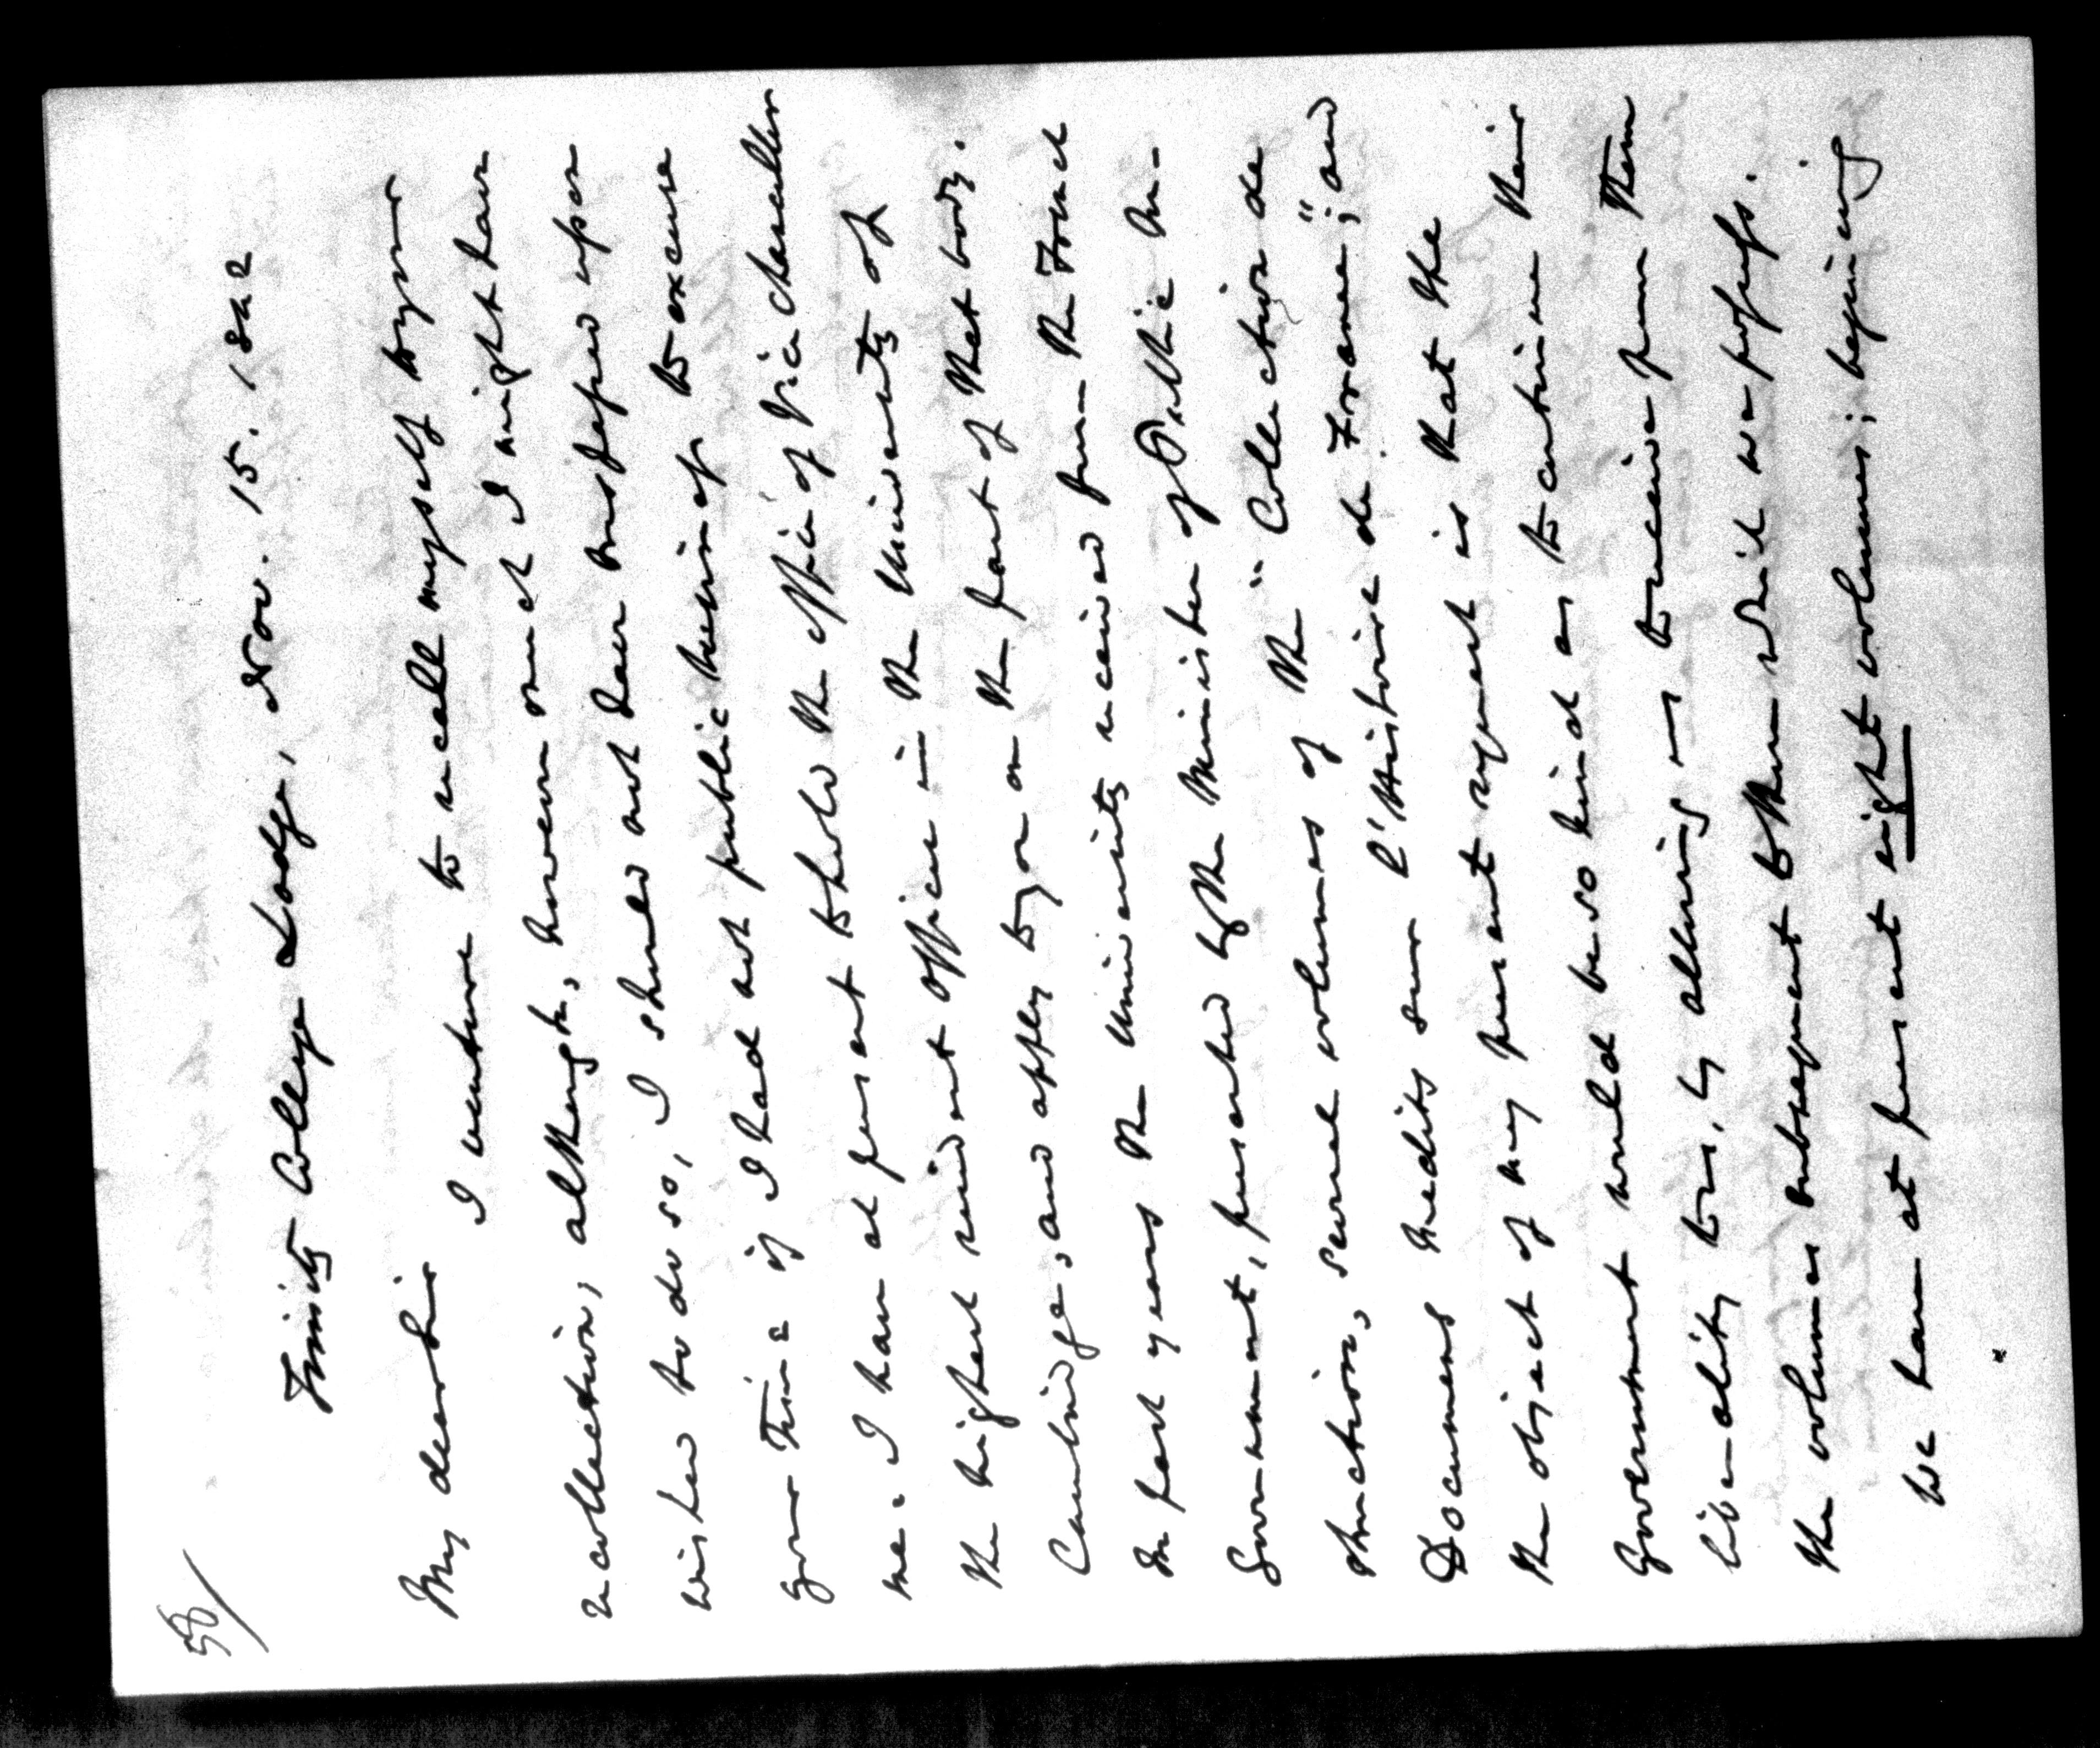 58/
Trinity College Lodge, Nov. 15. 1842
My dear Sir
I venture to recall myself to your
recollection, although, however much I might have
wished to do so, I should not have trespassed upon
your time if I had not public business to excuse
me. I have at present to hold the office of Vice Chancellor
the highest resident office in the University of
Cambridge, and apply to you on the part of that body.
In past years the University received from the French
Government, presented by the Minister of Public In-
struction, several volumes of the "Collection de
Documens Inedits sur l'Histoire de France"; and
the object of my present request is that the
Government would be so kind as to continue their
liberality to us, by allowing us to receive from them
the volumes subsequent to those which we possess.
We have at present eight volumes; beginning